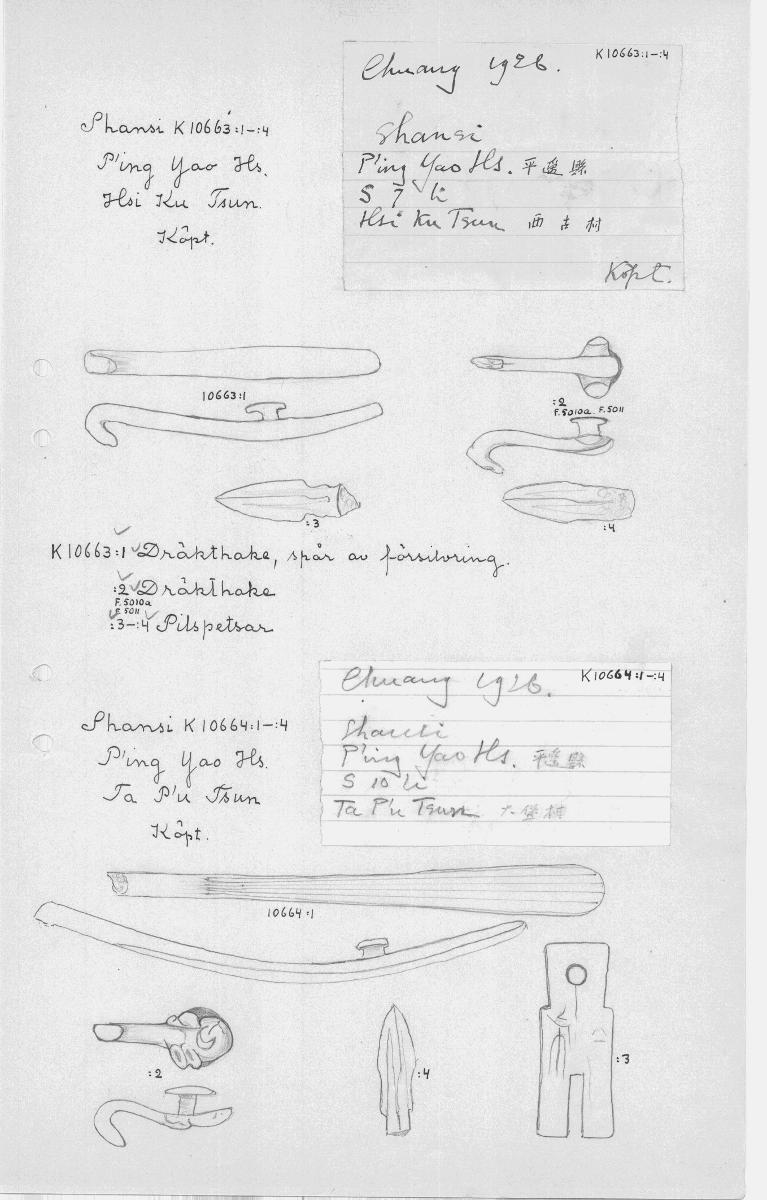 K10663:1-:4
Chuang 1926.
Shansi K10663:1-:4
P'ing Yao Hs.
Hsi Ku Tsun.
Köpt.
Shansi
P'ing Yao Hs. 平遙縣
S 7 li
Hsi Ku Tsun 西古村
Köpt.
10663:1
:2
F.5010a. F.5011
:3
:4
K10663:1 Dräkthake, spår av försilvring.
:2 Dräkthake
F.5010a
F.5011
:3-:4 Pilspetsar
K10664:1-:4
Chuang 1926.
Shansi K10664:1-:4
P'ing Yao Hs.
Ta P'u Tsun
Köpt.
Shansi
P'ing Yao Hs. 平遙縣
S 10 li
Ta P'u Tsun 大堡村
10664:1
:2
:4
:3